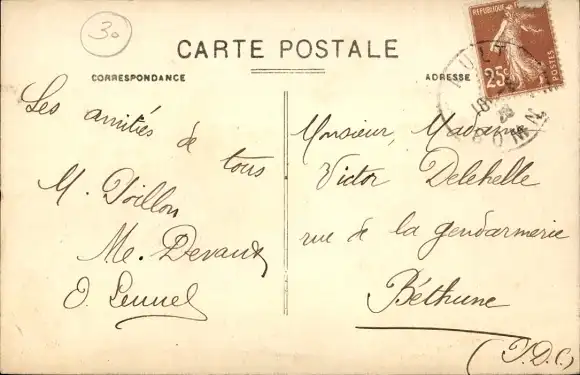 30
CARTE POSTALE
CORRESPONDANCE
ADRESSE
REPUBLIQUE
25c
POSTES
Les amitiés de
tous
M. Poillon
Me. Devaux
Monsieur, Madame
Victor Delehelle
rue de la gendarmerie
Béthune
(P.D.C.)